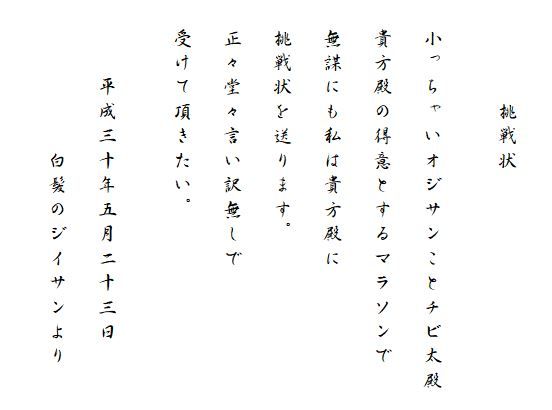 挑戦状
小っちゃいオジサンことチビ太殿
貴方殿の得意とするマラソンで
無謀にも私は貴方殿に
挑戦状を送ります。
正々堂々言い訳無しで
受けて頂きたい。
平成三十年五月二十三日
白髪のジイサンより